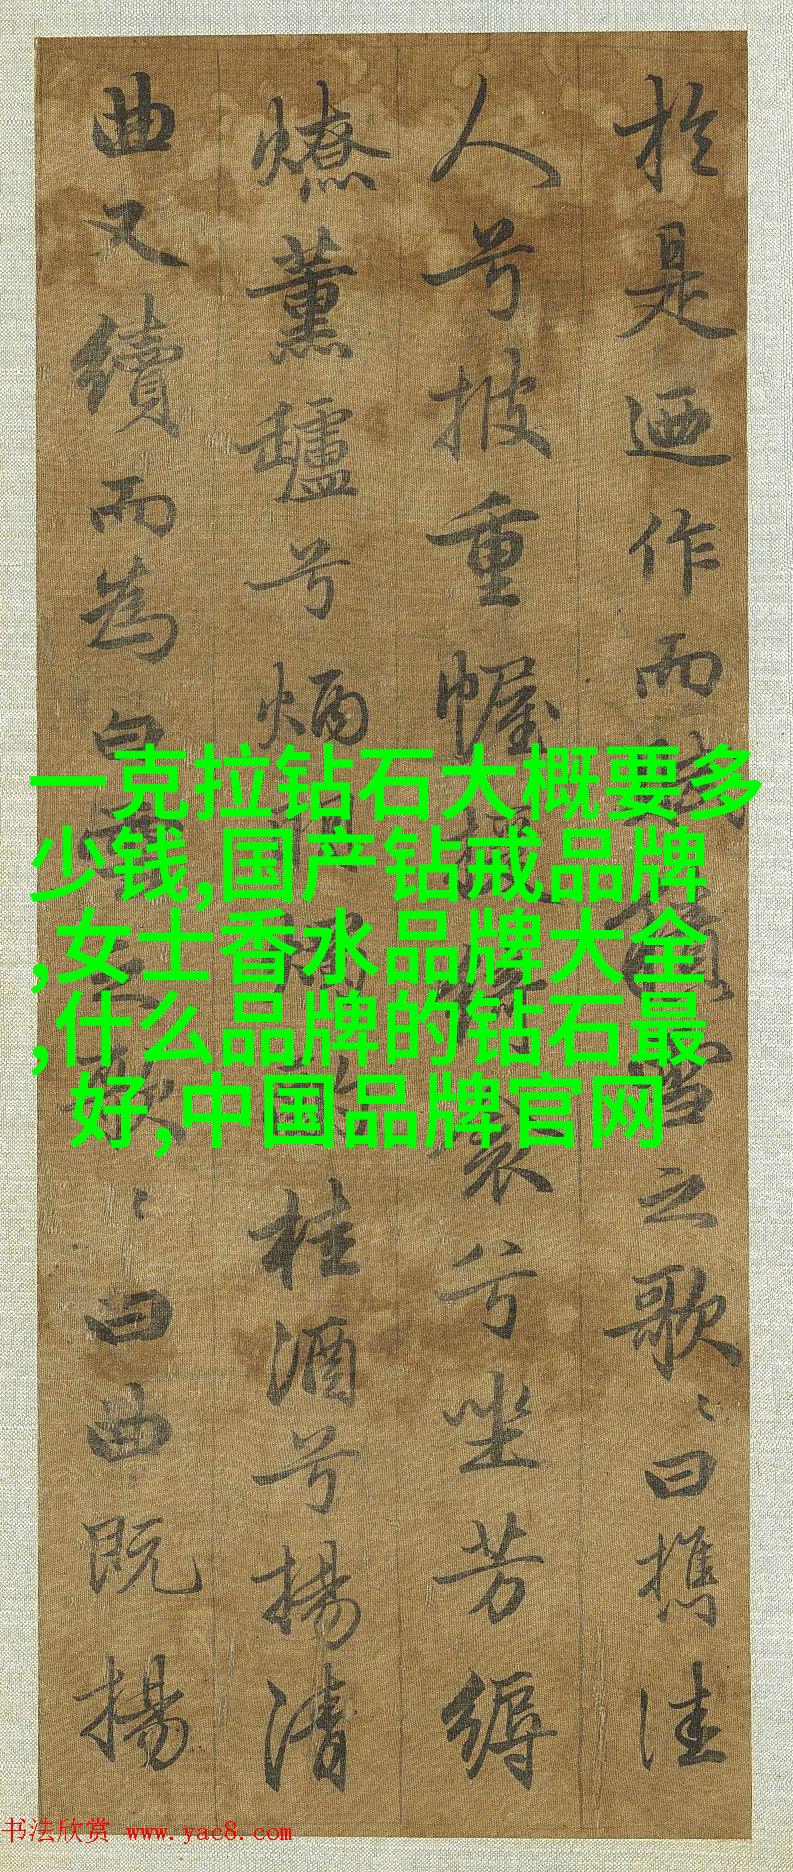 於是迺作而賦積雪之歌〻曰攜佳
人兮披重幄援綺衾兮坐芳縟
燎薰鑪兮炳明燭酌桂酒兮揚清
曲又續而為白雪之歌〻曰曲既揚
一克拉钻石大概要多
少钱,国产钻戒品牌
,女士香水品牌大全
,什么品牌的钻石最
好,中国品牌官网
书法欣赏 www.yac8.com